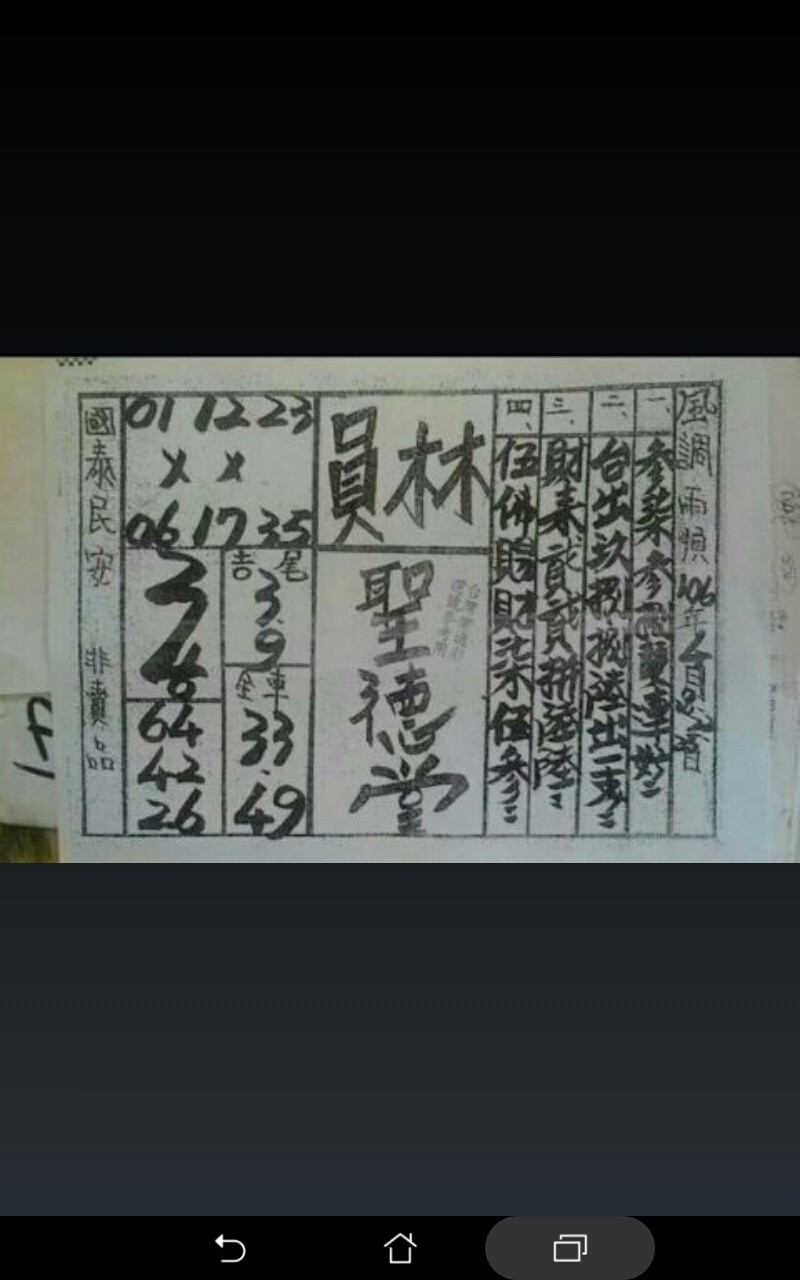 風調雨順 106年
一、參柒參捌雙連好
二、台出玖捌捌陸出一支
三、財來貳貳貳拼陸陸
四、伍佛賜財柒伍參
林員
聖德堂
01 12 23
x x
06 17 35
吉尾
3.9
3
64
42
26
金車
33.49
國泰民安 非賣品